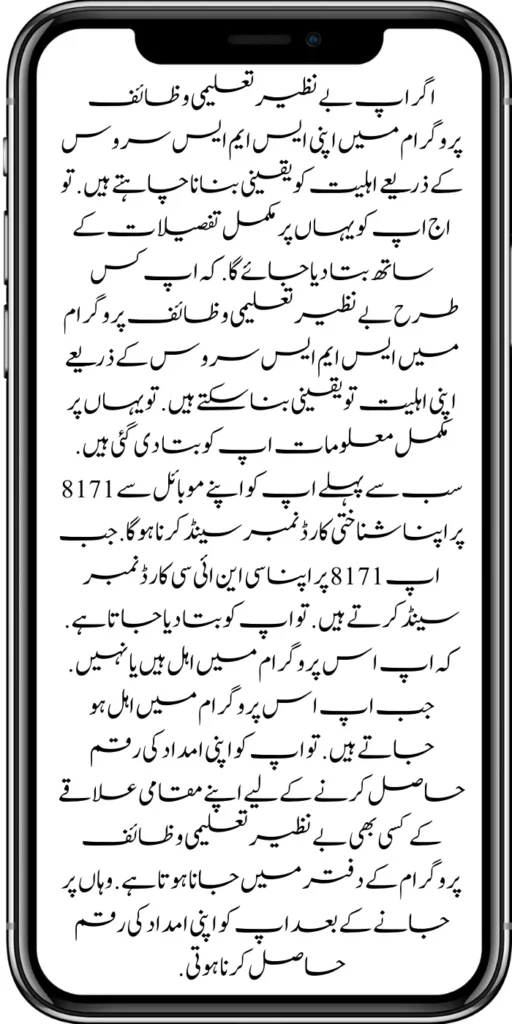 اگر اپ بے نظیر تعلیمی وظائف
پروگرام میں اپنی ایس ایم ایس سروس
کے ذریعے اہلیت کو یقینی بنانا چاہتے ہیں. تو
اج اپ کو یہاں پر مکمل تفصیلات کے
ساتھ بتا دیا جائے گا. کہ اپ کس
طرح بے نظیر تعلیمی وظائف پروگرام
میں ایس ایم ایس سروس کے ذریعے
اپنی اہلیت تو یقینی بنا سکتے ہیں. تو یہاں پر
مکمل معلومات اپ کو بتا دی گئی ہیں.
سب سے پہلے اپ کو اپنے موبائل سے 8171
پر اپنا شناختی کارڈ نمبر سینڈ کرنا ہوگا. جب
اپ 8171 پر اپنا سی این ائی سی کارڈ نمبر
سینڈ کرتے ہیں. تو اپ کو بتا دیا جاتا ہے.
کہ اپ اس پروگرام میں اہل ہیں یا نہیں.
جب اپ اس پروگرام میں اہل ہو
جاتے ہیں. تو اپ کو اپنی امداد کی رقم
حاصل کرنے کے لیے اپنے مقامی علاقے
کے کسی بھی بے نظیر تعلیمی وظائف
پروگرام کے دفتر میں جانا ہوتا ہے. وہاں پر
جانے کے بعد اپ کو اپنی امداد کی رقم
حاصل کرنا ہوتی.